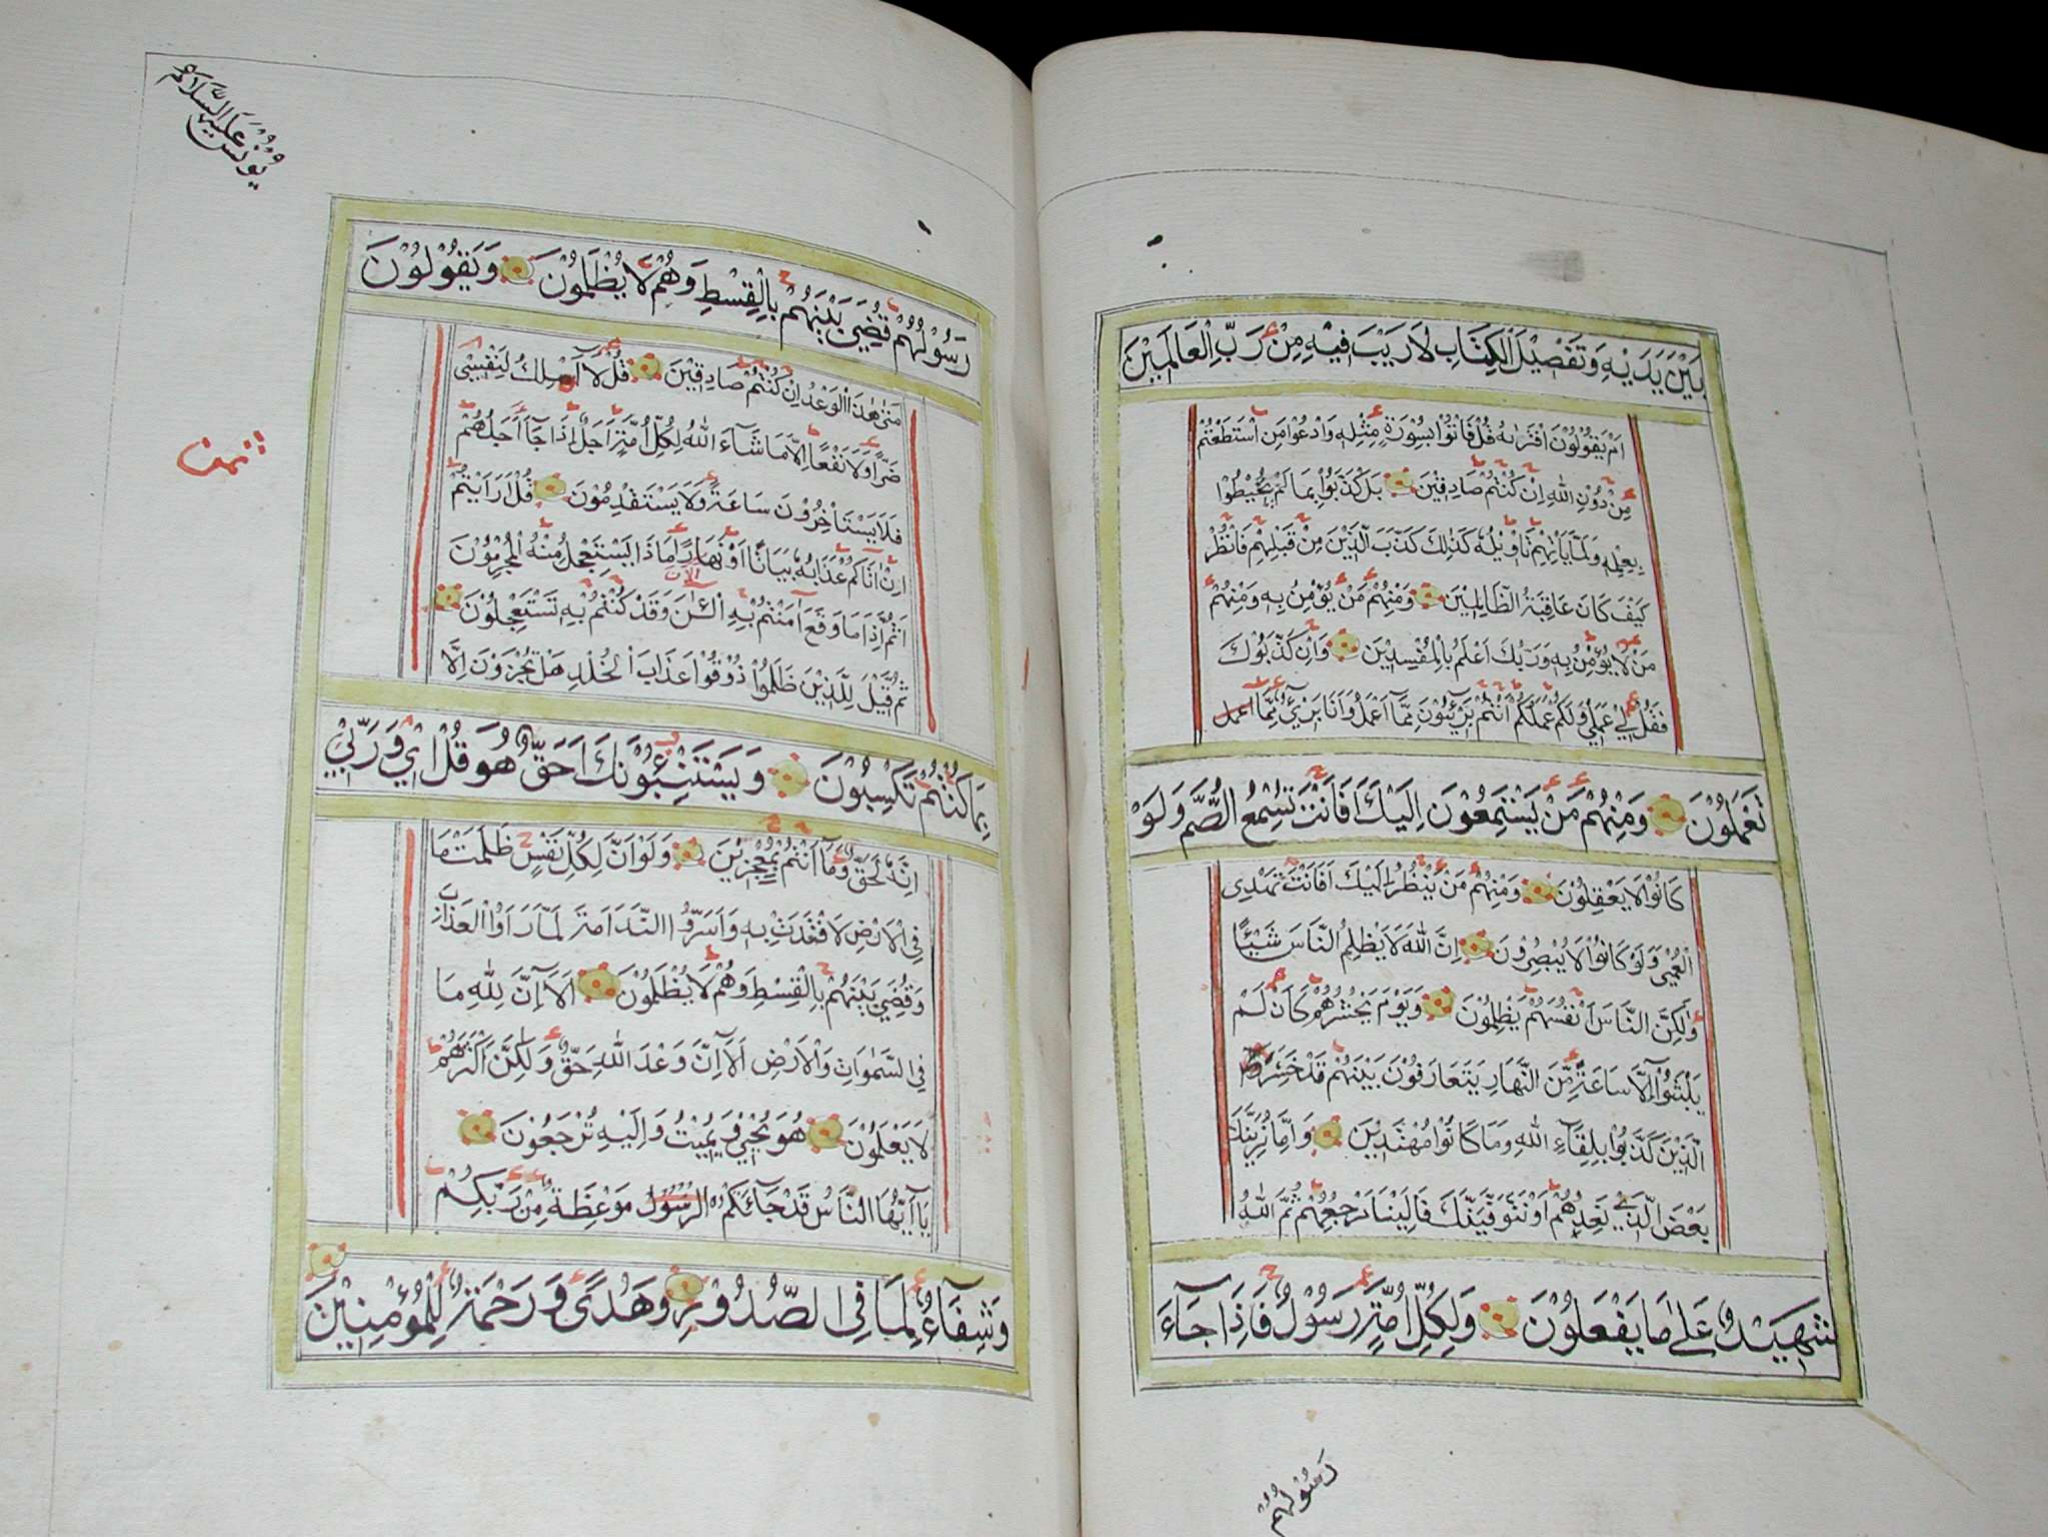 بَيْنَ يَدَيْهِ وَتَفْصِيْلَ الْكِتَابِ لَا رَيْبَ فِيْهِ مِنْ رَبِّ الْعَالَمِيْنَ
اَمْ يَقُوْلُوْنَ افْتَرٰىهُ قُلْ فَأْتُوْا بِسُوْرَةٍ مِثْلِهِ وَادْعُوْا مَنِ اسْتَطَعْتُمْ
مِنْ دُوْنِ اللهِ اِنْ كُنْتُمْ صَادِقِيْنَ بَلْ كَذَّبُوْا بِمَا لَمْ يُحِيْطُوْا
بِعِلْمِهِ وَلَمَّا يَأْتِهِمْ تَأْوِيْلُهُ كَذٰلِكَ كَذَّبَ الَّذِيْنَ مِنْ قَبْلِهِمْ فَانْظُرْ
كَيْفَ كَانَ عَاقِبَةُ الظَّالِمِيْنَ وَمِنْهُمْ مَنْ يُؤْمِنُ بِهِ وَمِنْهُمْ
مَنْ لَا يُؤْمِنُ بِهِ وَرَبُّكَ اَعْلَمُ بِالْمُفْسِدِيْنَ وَاِنْ كَذَّبُوْكَ
فَقُلْ لِيْ عَمَلِيْ وَلَكُمْ عَمَلُكُمْ اَنْتُمْ بَرِيْئُوْنَ مِمَّا اَعْمَلُ وَاَنَا بَرِيْءٌ مِمَّا اعمل
تَعْمَلُوْنَ وَمِنْهُمْ مَنْ يَسْتَمِعُوْنَ اِلَيْكَ اَفَاَنْتَ تُسْمِعُ الصُّمَّ وَلَوْ
كَانُوْا لَا يَعْقِلُوْنَ وَمِنْهُمْ مَنْ يَنْظُرُ اِلَيْكَ اَفَاَنْتَ تَهْدِى
الْعُمْيَ وَلَوْ كَانُوْا لَا يُبْصِرُوْنَ اِنَّ اللهَ لَا يَظْلِمُ النَّاسَ شَيْئًا
وَلٰكِنَّ النَّاسَ اَنْفُسَهُمْ يَظْلِمُوْنَ وَيَوْمَ يَحْشُرُهُمْ كَاَنْ لَمْ
يَلْبَثُوْا اِلَّا سَاعَةً مِّنَ النَّهَارِ يَتَعَارَفُوْنَ بَيْنَهُمْ قَدْ خَسِرَ
الَّذِيْنَ كَذَّبُوْا بِلِقَاءِ اللهِ وَمَا كَانُوْا مُهْتَدِيْنَ وَاِمَّا نُرِيَنَّكَ
بَعْضَ الَّذِيْ نَعِدُهُمْ اَوْ نَتَوَفَّيَنَّكَ فَاِلَيْنَا مَرْجِعُهُمْ ثُمَّ اللهُ
شَهِيْدٌ عَلٰى مَا يَفْعَلُوْنَ وَلِكُلِّ اُمَّةٍ رَسُوْلٌ فَاِذَا جَاءَ
رَسُوْلُهُمْ
يُوْنُسَ عَلَيْهِ السَّلَامُ
رَسُوْلُهُمْ قُضِيَ بَيْنَهُمْ بِالْقِسْطِ وَهُمْ لَا يُظْلَمُوْنَ وَيَقُوْلُوْنَ
مَتٰى هٰذَا الْوَعْدُ اِنْ كُنْتُمْ صَادِقِيْنَ قُلْ لَا اَمْلِكُ لِنَفْسِيْ
ضَرًّا وَلَا نَفْعًا اِلَّا مَا شَاءَ اللهُ لِكُلِّ اُمَّةٍ اَجَلٌ اِذَا جَاءَ اَجَلُهُمْ
فَلَا يَسْتَأْخِرُوْنَ سَاعَةً وَلَا يَسْتَقْدِمُوْنَ قُلْ اَرَاَيْتُمْ
اِنْ اَتَاكُمْ عَذَابُهُ بَيَاتًا اَوْ نَهَارًا مَاذَا يَسْتَعْجِلُ مِنْهُ الْمُجْرِمُوْنَ
اَثُمَّ اِذَا مَا وَقَعَ اٰمَنْتُمْ بِهِ اٰلْئٰنَ وَقَدْ كُنْتُمْ بِهِ تَسْتَعْجِلُوْنَ
ثُمَّ قِيْلَ لِلَّذِيْنَ ظَلَمُوْا ذُوْقُوْا عَذَابَ الْخُلْدِ هَلْ تُجْزَوْنَ اِلَّا
بِمَا كُنْتُمْ تَكْسِبُوْنَ وَيَسْتَنْبِئُوْنَكَ اَحَقٌّ هُوَ قُلْ اِيْ وَرَبِّيْ
اِنَّهُ لَحَقٌّ وَمَا اَنْتُمْ بِمُعْجِزِيْنَ وَلَوْ اَنَّ لِكُلِّ نَفْسٍ ظَلَمَتْ مَا
فِي الْاَرْضِ لَافْتَدَتْ بِهِ وَاَسَرُّوا النَّدَامَةَ لَمَّا رَاَوُا الْعَذَابَ
وَقُضِيَ بَيْنَهُمْ بِالْقِسْطِ وَهُمْ لَا يُظْلَمُوْنَ اَلَا اِنَّ لِلّٰهِ مَا
فِي السَّمٰوَاتِ وَالْاَرْضِ اَلَا اِنَّ وَعْدَ اللهِ حَقٌّ وَلٰكِنَّ اَكْثَرَهُمْ
لَا يَعْلَمُوْنَ هُوَ يُحْيِيْ وَيُمِيْتُ وَاِلَيْهِ تُرْجَعُوْنَ
يَا اَيُّهَا النَّاسُ قَدْ جَائَكُمْ الرَّسُوْلُ مَوْعِظَةٌ مِنْ رَبِّكُمْ
وَشِفَاءٌ لِمَا فِي الصُّدُوْرِ وَهُدًى وَرَحْمَةٌ لِلْمُؤْمِنِيْنَ